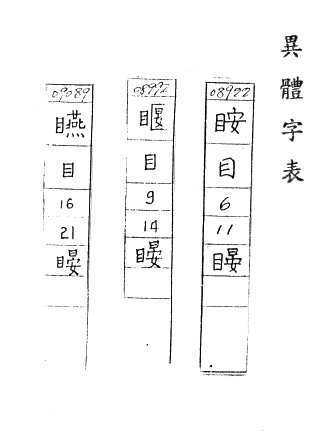 異體字表
08922
䀂
目
6
11
䁙
08992
䁂
目
9
14
䁙
09089
矊
目
16
21
䁙